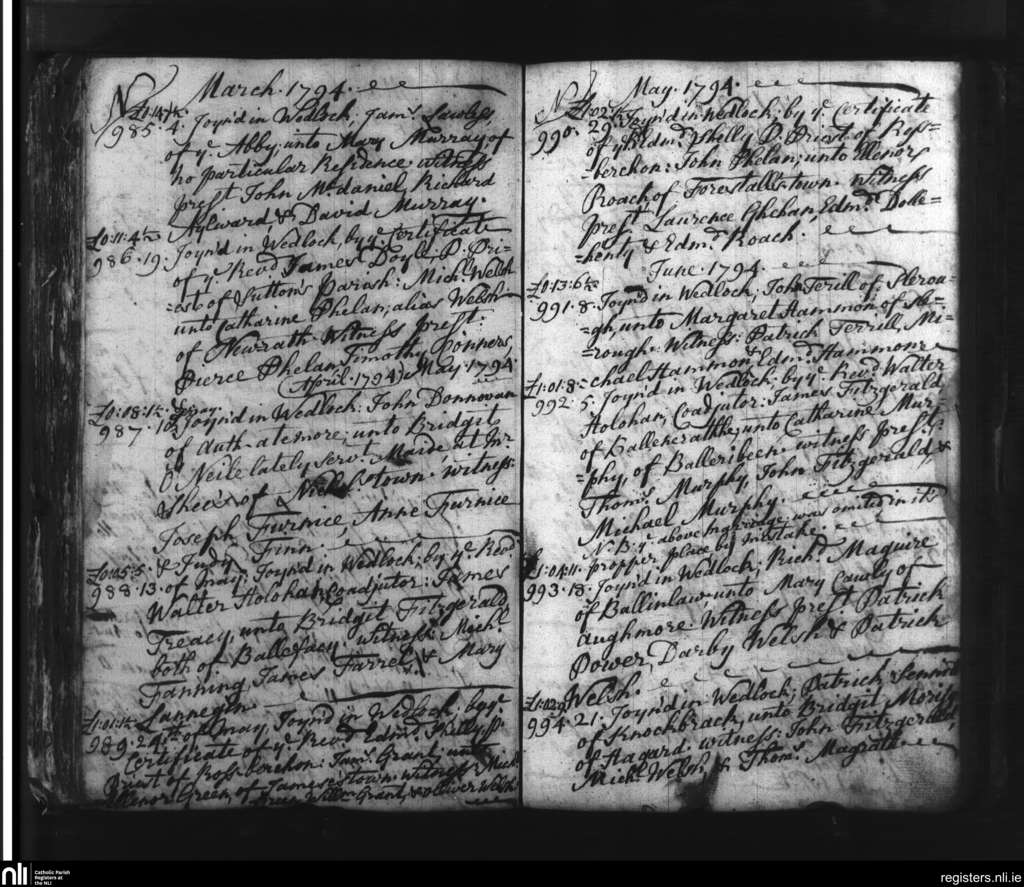 March. 1794.
No
985. 4. Joyn'd in Wedlock, Jams. Lawless,
of ye. Abby, unto Mary Murray, of
no particular Residence; witness
prest John Mcdaniel, Richard
Aylward, & David Murray.
£0:11:4½
986. 19. Joyn'd in Wedlock, by ye. Certificate
of ye. Revd. James Doyle, P. Pri=
=est of Suttons Parish: Michl. Welsh
unto Catharine Phelan; alias Welsh
of Newrath. Witness prest:
Pierce Phelan, Timothy Conners,
(April. 1794) May. 1794.
£0:18:1½ May.
987. 10. Joyn'd in Wedlock: John Donnovan
of Auth-atemore; unto Bridgit
O Neile lately servt. Maide at Mr
Shee's of town. witness.
Joseph Furnice, Anne Furnice
& Judy Finn.
988. 13. of may; Joyn'd in Wedlock; by ye. Revd
Walter Holohan Coadjutor: James
Treacy, unto Bridgit Fitzgerald
both of Ballefacy. witness. Michl.
Fanning James Farrel, & Mary
Lannegin
£1:01:1½
989. 24th of May, Joyn'd in Wedlock, by ye.
Certificate of ye. Revd. Edmd. Phelly P.
Priest of Ross-berchon: Jams. Grant; unto
Elenor Green, of Jamestown: witness. Michl.
Green Willm. Grant, & Oliver Welsh
May. 1794.
No
990. 29. Joyn'd in Wedlock; by ye. Certificate
of ye. Rd. Edmd. Phelly P. Priest of Ross=
=berchon: John Phelan; unto Elenor
Roach of Forestallstown. witness
prest. Laurence Ghehan, Edmd. Dolle=
=henty & Edmd. Roach.
June. 1794.
£0:13:6½
991. 8. Joyn'd in Wedlock; John Terill of Slerou=
=gh, unto Margaret Hammon of
=rough. Witness: Patrick Terrill, Mi=
=chael Hammon & Edmd. Hammon
£1:01:8
992. 5. Joyn'd in Wedlock; by ye. Revd. Walter
Holohan, Coadjutor: James Fitzgerald
of unto Catharine Mur=
=phy, of Balleribeen. witness prest:
Thoms. Murphy, John Fitzgerald, &
Michael Murphy.
N:B: ye. above marriage was omited in its
propper place by mistake.
£1:04:11
993. 18. Joyn'd in Wedlock; Richd. Maguire
of Ballinlaw; unto Mary Cawly of
aughmore. Witness prest. Patrick
Power, Darby Welsh & Patrick
Welsh.
994. 21. Joyn'd in Wedlock; Patrick
of Knockbrack, unto Bridgit
of Hagard. witness: John Fitzgerald,
Michl. Welsh, & Thoms. Magrath.
nli
Catholic Parish
Registers at
the NLI
registers.nli.ie